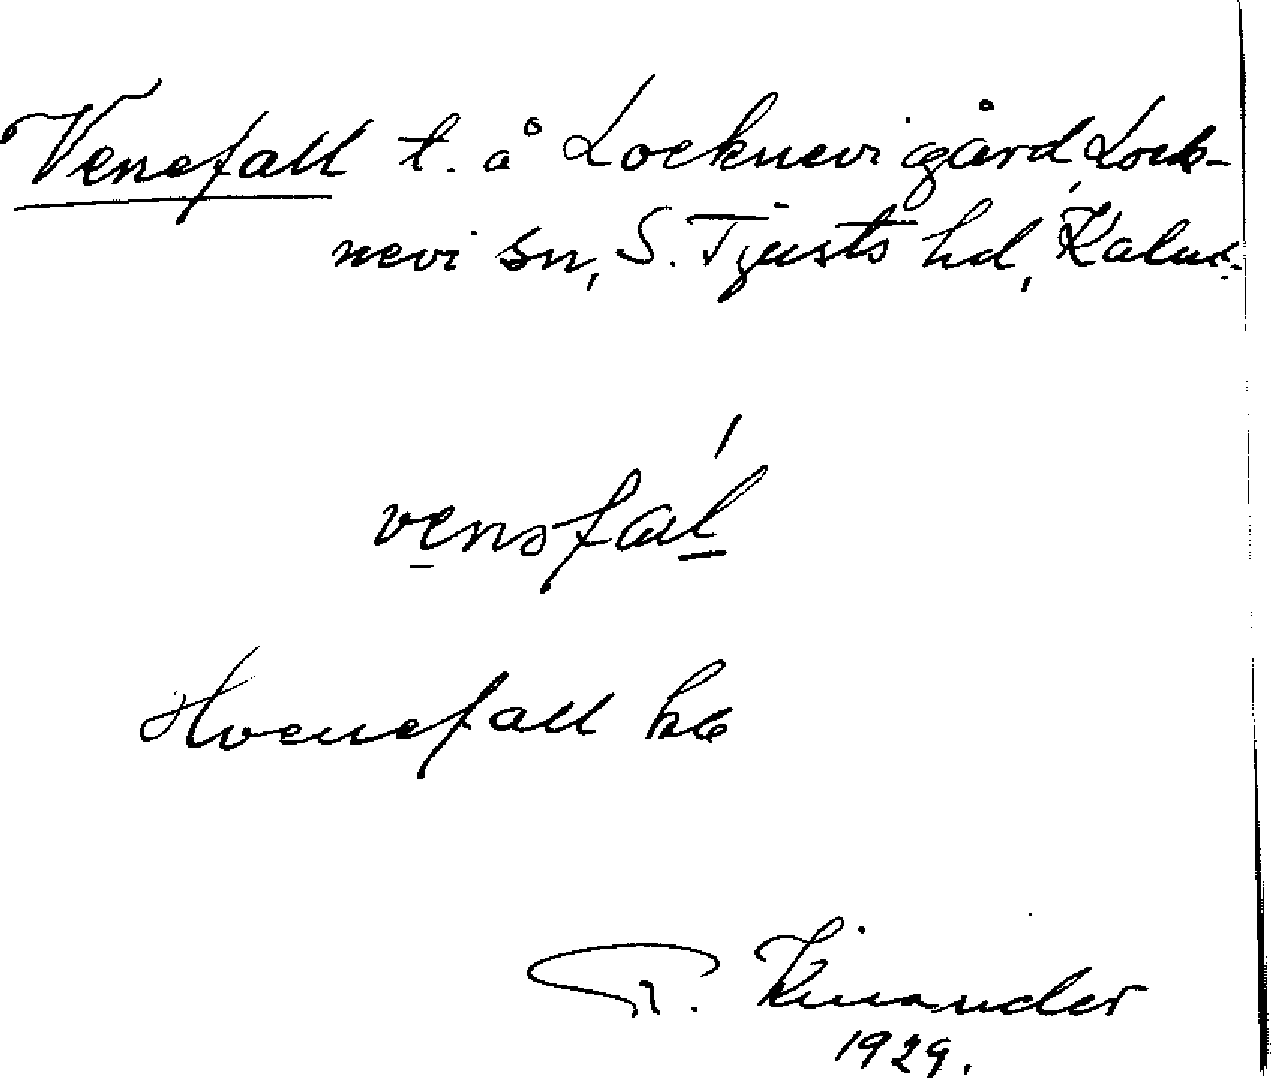 Venefall t. å Locknevi gård, Lock-
nevi sn, S. Tjusts hd, Kalm.
venəfal
Hvenefall hk
R. Kinander
1929.